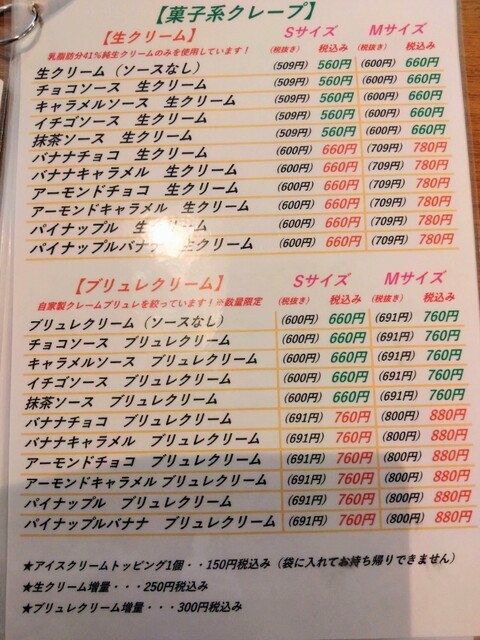 【菓子系クレープ】
【生クリーム】 Sサイズ Mサイズ
乳脂肪分41%純生クリームのみを使用しています！ (税抜き) 税込み (税抜き) 税込み
生クリーム（ソースなし） (509円) 560円 (600円) 660円
チョコソース 生クリーム (509円) 560円 (600円) 660円
キャラメルソース 生クリーム (509円) 560円 (600円) 660円
イチゴソース 生クリーム (509円) 560円 (600円) 660円
抹茶ソース 生クリーム (509円) 560円 (600円) 660円
バナナチョコ 生クリーム (600円) 660円 (709円) 780円
バナナキャラメル 生クリーム (600円) 660円 (709円) 780円
アーモンドチョコ 生クリーム (600円) 660円 (709円) 780円
アーモンドキャラメル 生クリーム (600円) 660円 (709円) 780円
パイナップル 生クリーム (600円) 660円 (709円) 780円
パイナップルバナナ 生クリーム (600円) 660円 (709円) 780円
【ブリュレクリーム】 Sサイズ Mサイズ
自家製クレームブリュレを絞っています！※数量限定 (税抜き) 税込み (税抜き) 税込み
ブリュレクリーム（ソースなし） (600円) 660円 (691円) 760円
チョコソース ブリュレクリーム (600円) 660円 (691円) 760円
キャラメルソース ブリュレクリーム (600円) 660円 (691円) 760円
イチゴソース ブリュレクリーム (600円) 660円 (691円) 760円
抹茶ソース ブリュレクリーム (600円) 660円 (691円) 760円
バナナチョコ ブリュレクリーム (691円) 760円 (800円) 880円
バナナキャラメル ブリュレクリーム (691円) 760円 (800円) 880円
アーモンドチョコ ブリュレクリーム (691円) 760円 (800円) 880円
アーモンドキャラメル ブリュレクリーム (691円) 760円 (800円) 880円
パイナップル ブリュレクリーム (691円) 760円 (800円) 880円
パイナップルバナナ ブリュレクリーム (691円) 760円 (800円) 880円
★アイスクリームトッピング1個・・150円税込み（袋に入れてお持ち帰りできません）
★生クリーム増量・・・250円税込み
★ブリュレクリーム増量・・・300円税込み